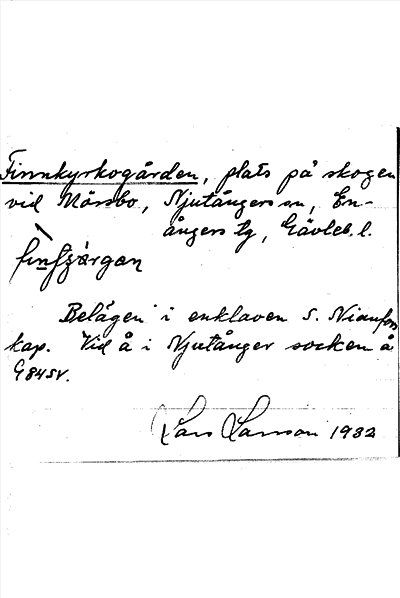 Finnkyrkogården, plats på skogen
vid Mörsbo, Njutångers sn, En-
ångers tg, Gävleb. l.
Belägen i enklaven S. Nianfors
kap. Vid å i Njutånger socken å
G84SV.
Lars Larsson 1932